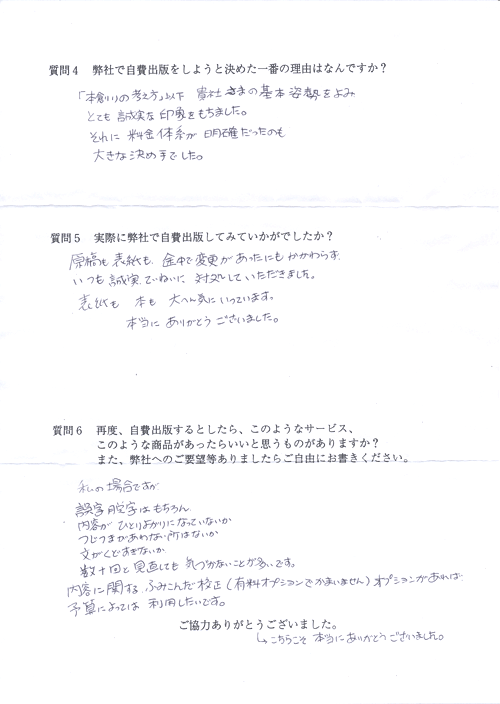 質問４ 弊社で自費出版をしようと決めた一番の理由はなんですか？
「本創りの考え方」以下 貴社さまの基本姿勢をよみ
とても誠実な印象をもちました。
それに 料金体系が 明確だったのも
大きな決め手でした。
質問５ 実際に弊社で自費出版してみていかがでしたか？
原稿も 表紙も 途中で変更があったにもかかわらず、
いつも誠実、ていねいに 対処していただきました。
表紙も 本も 大へん気にいっています。
本当に ありがとう ございました。
質問６ 再度、自費出版するとしたら、このようなサービス、
このような商品があったらいいと思うものがありますか？
また、弊社へのご要望等ありましたらご自由にお書きください。
私の場合ですが
誤字脱字はもちろん
内容が ひとりよがりになっていないか
つじつまがあわない所はないか
文がくどすぎないか
数十回と見直しても 気づかないことが多いです。
内容に関する、ふみこんだ校正(有料オプションでかまいません)オプションがあれば
予算によっては 利用したいです。
ご協力ありがとうございました。
↳こちらこそ 本当にありがとう ございました。